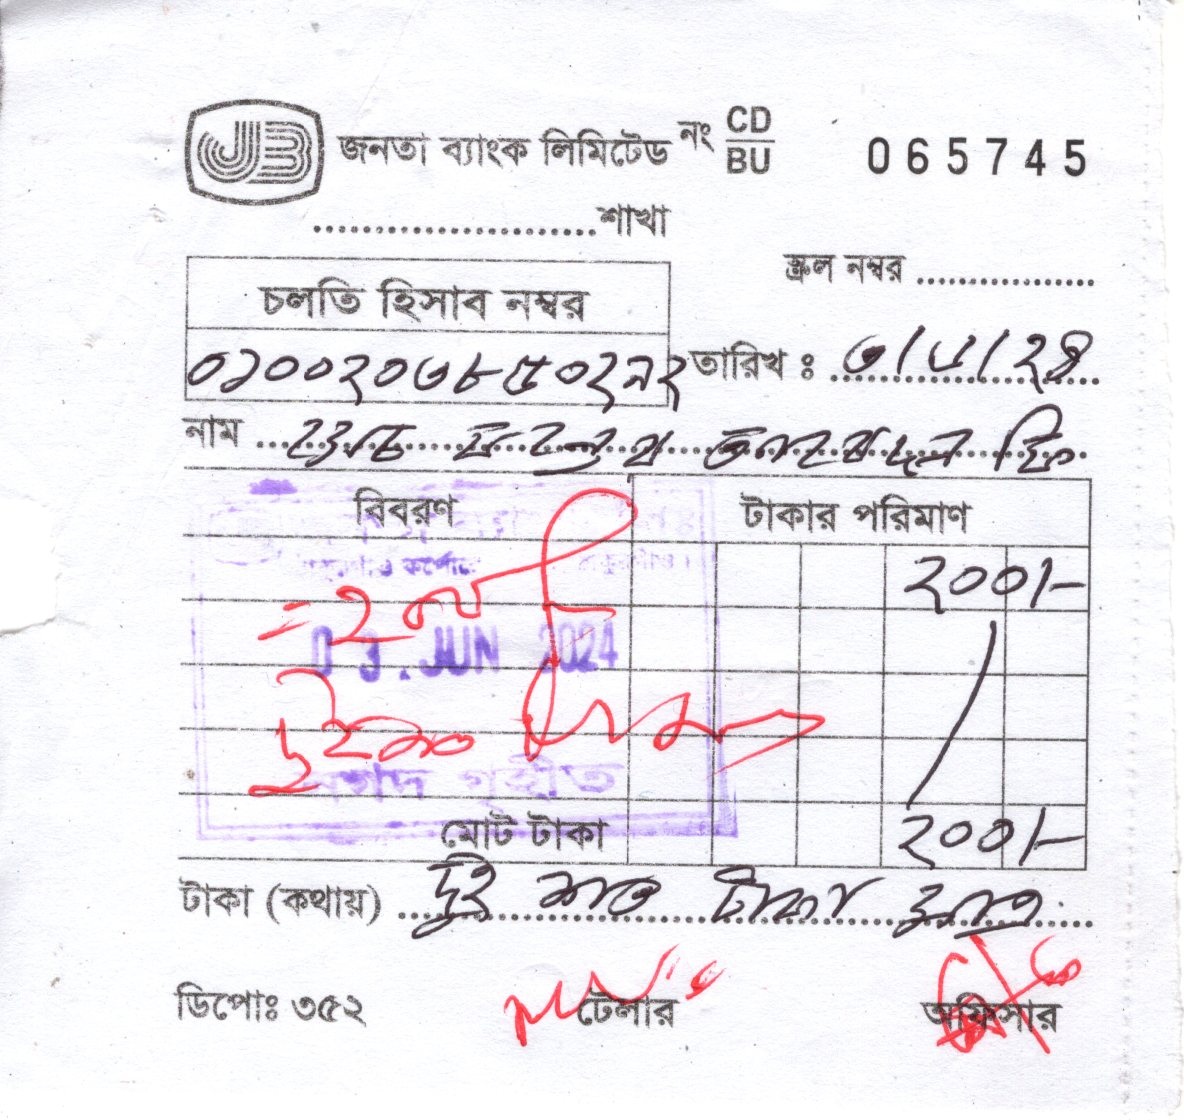 JB জনতা ব্যাংক লিমিটেড নং CD/BU 065745
......................শাখা
স্ক্রল নম্বর .................
চলতি হিসাব নম্বর
০১০০২০৩৮৫০২৭২ তারিখ ঃ ৩/৬/২৪
নাম
বিবরণ টাকার পরিমাণ
২০০/-
= ২০০/
03 JUN 2024
দুইশত
নগদ গৃহীত
মোট টাকা ২০০/-
টাকা (কথায়) দুই শত টাকা মাত্র
ডিপোঃ ৩৫২ টেলার অফিসার